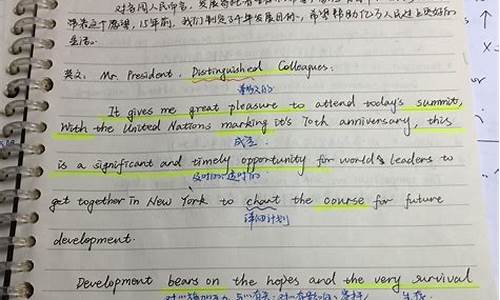 对各国人民而言,发展寄托着
带着这个愿望,15年前,我们制定了千年发展目标,希望帮助亿万人民过上更好的
生活。
英文: Mr. President, Distinguished Colleagues:
尊敬的
It gives me great pleasure to attend today's summit,
With the United Nations marking it's 70th anniversary, this
成立
is a significant and timely opportunity for world's leaders to
及时的;适时的
get together in New York to chart the course for future
详细计划
development.
Development bears on the hopes and the very survival